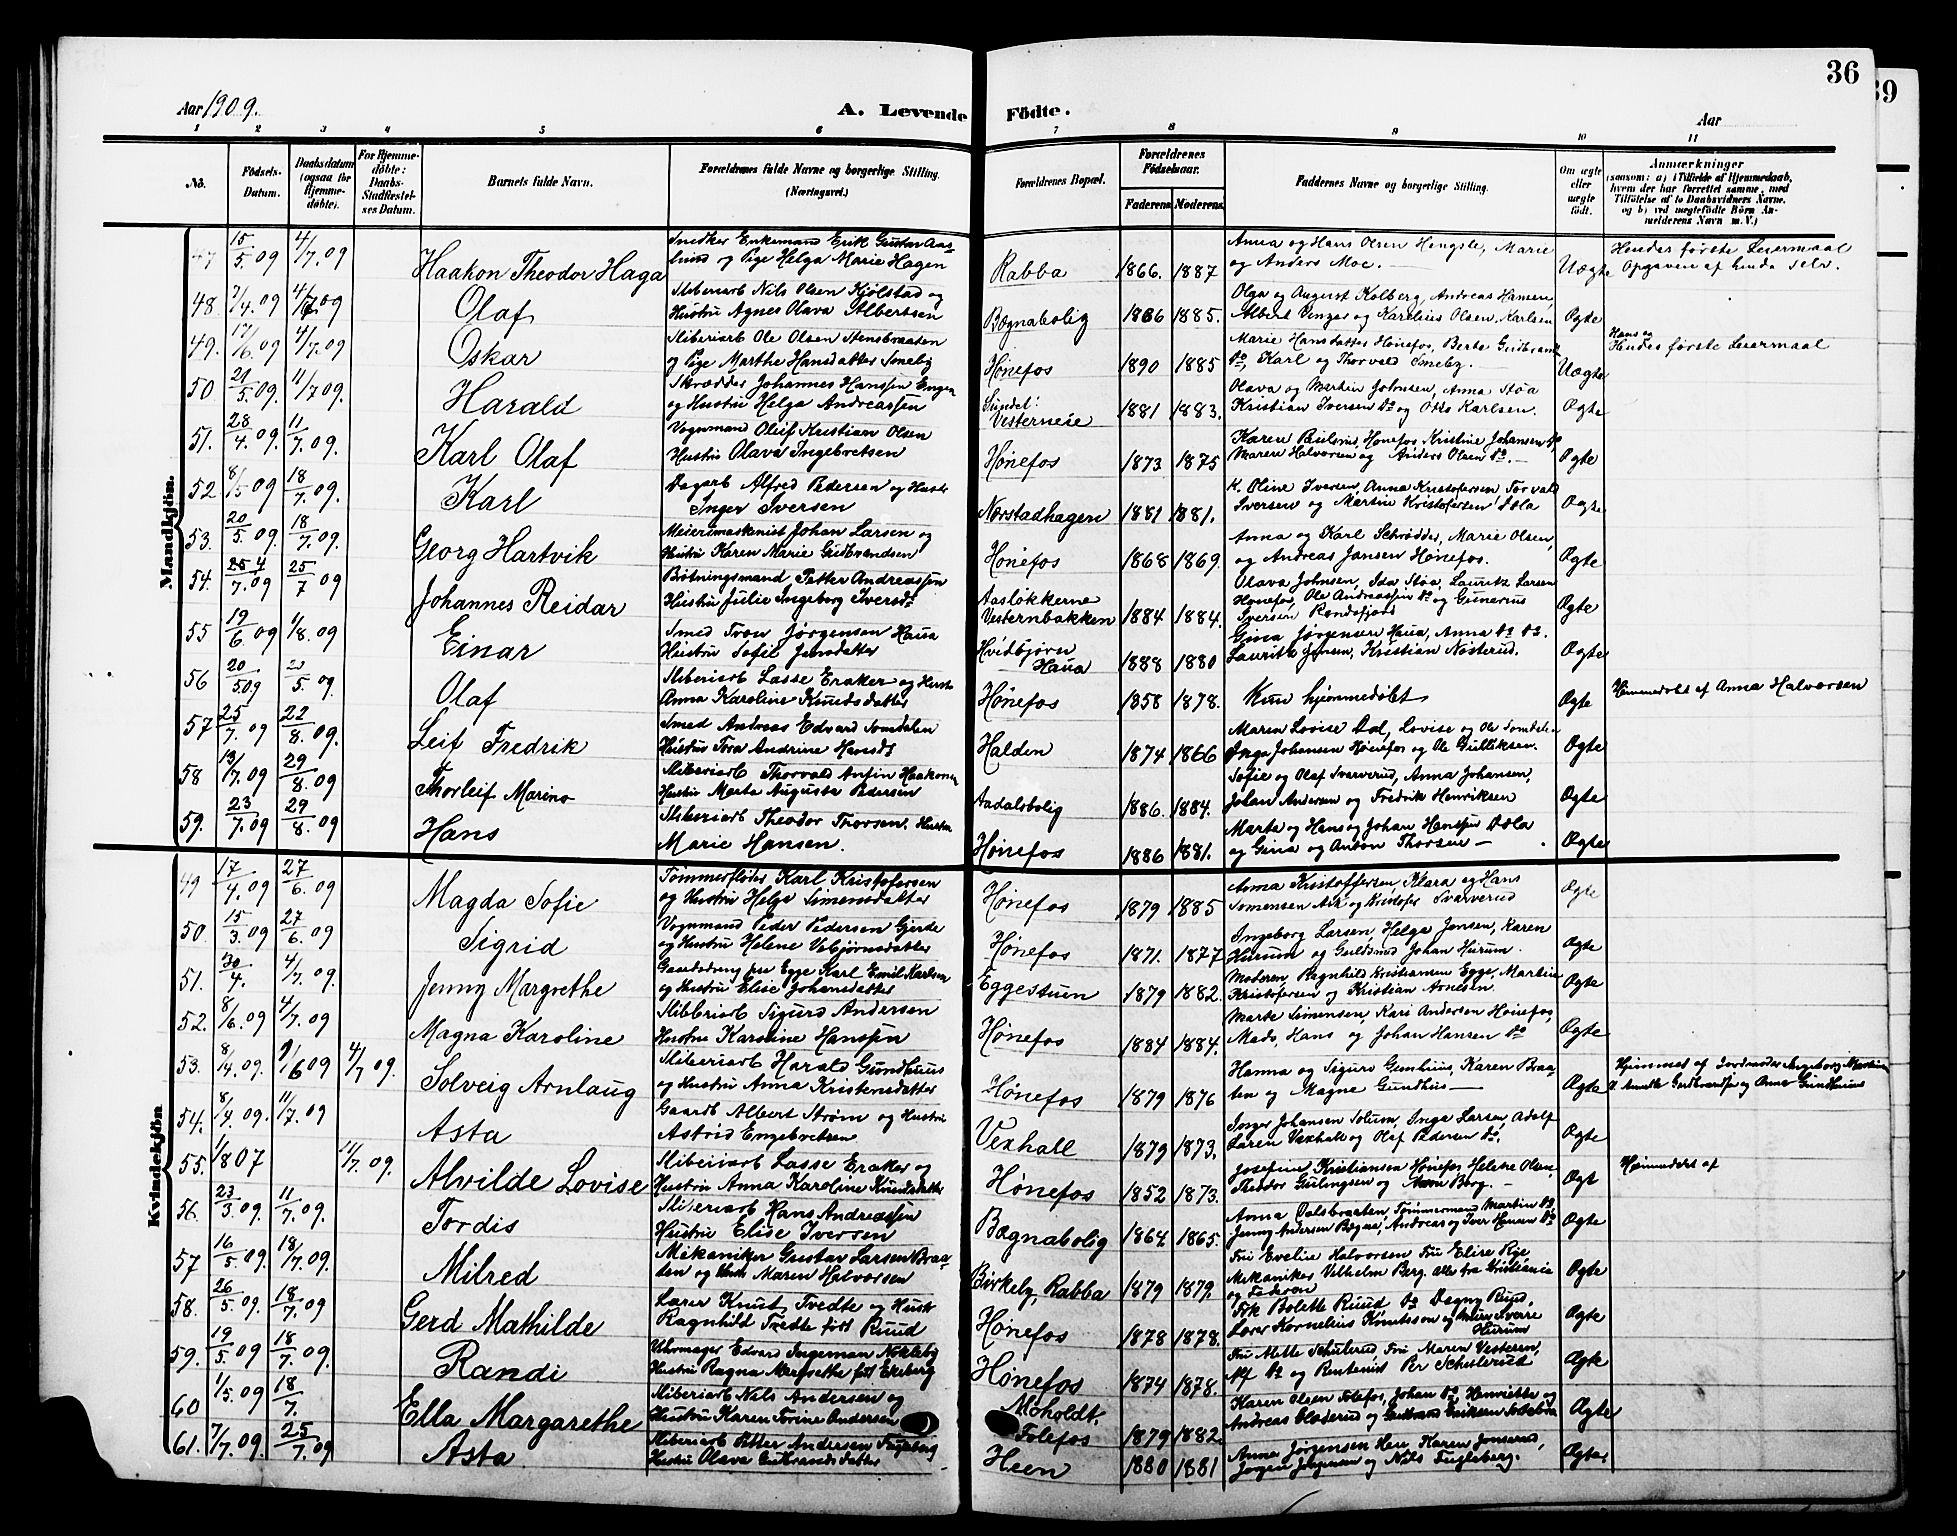 36
39
Aar 1909.
A. Levende Födte.
Aar
1 2 3 4 5 6 7 8 9 10 11
No.
Födsels-Datum.
Daabsdatum (ogsaa for Hjemme-döbte).
For Hjemme-döbte: Daabs-Stadfæstel-ses Datum.
Barnets fulde Navn.
Forældrenes fulde Navne og borgerlige Stilling. (Næringsvei.)
Forældrenes Bopæl.
Forældrenes Födselsaar.
Faderens Moderens
Faddernes Navne og borgerlige Stilling.
Om ægte eller uægte födt.
Anmærkninger (saasom: a) i Tilfælde af Hjemmedaab, hvem der har forrettet samme, med Tilföielse af to Daabsvidners Navne, og b) ved uægtefödte Börn An-melderens Navn m. V.)
Mandkjön.
47 15/5.09 4/7.09 Haakon Theodor Haga Snedker Enkemand Erik Gustav Aas-lund og Pige Helga Marie Hagen Rabba 1866. 1887 Anna og Hans Olsen Hengsle, Marie og Anders Moe. Uægte Hendes første Leiermaal Opgaven af hende selv.
48 7/4.09 4/7.09 Olaf Sliberiarb Nils Olsen Kjølstad og Hustru Agnes Olava Albertsen Bægnabolig 1886 1885. Olga og August Kolberg, Andreas Hansen, Albert og Karelius Olsen, Karlsen Ægte
49. 17/6.09 4/7.09 Oskar Sliberiarb Ole Olsen Stensbraaten og Pige Marthe Hansdatter Smeby Hønefos 1890 1885 Marie Hansdatter Hønefos, Berte Gulbrand do, Karl og Thorvald Smeby. Uægte Hans og Hendes første Leiermaal
50 21/5.09. 11/7.09 Harald Skrædder Johannes Hanssen Engen og Hustru Helga Andreassen Sundet: Vesterneie 1881 1883. Olava og Martin Johnsen, Anna Støa Kristian Iversen do og Otto Karlsen. Ægte
51. 28/4.09. 11/7.09. Karl Olaf Vognmand Oluf Kristian Olsen Hustru Olava Ingebretsen Hønefos 1873 1875 Karen Paulsrud, Hønefos Kristine Johansen do Maren Halvorsen og Anders Olsen do. Ægte
52. 8/5 09 18/7.09. Karl Dagarb Alfred Pedersen og Hustr Inger Iversen Nærstadhagen 1881 1881. K. Oline Iversen, Anna Kristofersen, Torvald Iversen og Martin Kristofersen Dola Ægte
53. 20/5.09. 18/7.09. Georg Hartvik Meierimaskinist Johan Larsen og Hustru Karen Marie Gulbrandsen Hønefos 1868 1869. Anna og Karl Schrødder, Marie Olsen, og Andreas Jansen Hønefos. Ægte
54. 7.09 25/7 09 Johannes Reidar Brotningsmand Petter Andreassen Hustru Julie Ingeborg Iversdt Aasløkkerne Vesternbakken 1884 1884. Olava Johnsen, Ida Støa, Lauritz Larsen Hønefos, Ole Andreassen do og Gunerius Iversen Randsfjord Ægte
55 19/6.09 1/8.09 Einar Smed Tron Jørgensen Haua Hustru Sofie Jensdatter Hvidbjørn Haua 1888 1880 Gina Jørgensen Haua, Anna do do. Lauritz Jensen, Kristian Nøsterud. Ægte
56 20/5 09 5. 09. Olaf Sliberiarb Lasse Eraker og Hustr Anna Karoline Knudsdatter Hønefos 1858 1878. Kun hjemmedøbt Ægte Hjemmedøbt af Anna Halvorsen
57 25/7.09 22/8.09. Leif Fredrik Smed Andreas Edvard Somdalen Hustru Tora Andrine Hansdt Halden 1874 1866 Maren Lovise Dal, Lovise og Ole Somdalen Inga Johansen Hønefos og Ole Gulliksen. Ægte
58 13/7.09 29/8.09 Thorleif Marino Sliberiarb Thorvald Anfin Haakonsen Hustru Marta Augusta Pedersen Aadalsbolig 1886. 1884. Sofie og Olaf Svarverud, Anna Johansen, Johan Andersen og Fredrik Henriksen Ægte
59. 23/7.09 29/8.09 Hans Sliberiarb Theodor Thorsen. Hustru Marie Hansen. Hønefos 1886 1881. Marta og Hans og Johan Hanssen Dola og Gina og Anton Thorsen Ægte
Kvindekjön
49 17/4.09 27/6.09 Magda Sofie Tømmerfløder Karl Kristofersen og Hustru Helga Simensdatter Hønefos 1879 1885 Anna Kristoffersen, Klara og Hans Simensen Ask og Kristofer Svarverud Ægte
50 15/3.09 27/6.09 Sigrid Vognmand Peder Pedersen Gjerde og Hustru Helene Vebjørnsdatter Hønefos 1871. 1877 Ingeborg Larsen, Helga Jensen, Karen Hurum og Guldsmed Johan Hurum. Ægte
51. 30/4. 4/7.09. Jenny Margrethe Gaardsdreng paa Egge Karl Emil Karlsen og Hustru Elise Johansdatter Eggestuen 1879 1882. Moderen, Ragnhild Kristiansen Egge, Martin Kristofersen og Kristian Arnesen. Ægte
52. 8/6.09 4/7.09 Magna Karoline Slibriarb Sigurd Andersen Hustru Karoline Hanssen Hønefos 1884 1884. Marte Simensen, Kari Andersen Hønefos, Mads, Hans og Johan Hansen do Ægte
53. 8/4.09. 9/6 09 4/7 09. Solveig Arnlaug Sliberiarb Harald Gundhuus og Hustru Anna Kristensdatter Hønefos 1879 1876 Hanna og Sigurd Gundhus, Karen Braa-ten og Magne Gundhus Ægte Hjemmed af Jordmoder Ingeborg
54. 8/4.09. 11/7.09 Asta Gaardb Albert Strøm og Hustru Astrid Engebretsen Vexhall 1879 1873. Inger Johansen Solum, Inga Larsen, Adolf Larsen Vexhall og Olaf Pedersen do. Ægte
55. 1/8 07 11/7.09. Alvilde Lovise Sliberiarb Lasse Eraker og Hustru Anna Karoline Knudsdatter Hønefos 1852 1873. Josefine Kristiansen Hønefos Helene Olsen, Theodor Gulingsen og Berg. Ægt Hjemmedøbt af
56. 23/3.09. 11/7.09. Tordis Sliberiarb Hans Andreassen Hustru Elise Iversen Bægnabolig 1864 1865. Anna Dalsbraaten, Tømmermand Martin do Jenny Andersen Bægna, Andreas og Iver Hansen do Ægte
57 16/5.09. 18/7.09. Milred Mekaniker Gustav Larsen Braa-ten og Hustr Maren Halvorsen Birkeby, Rabba 1879 1879. Fru Evelie Halvorsen Fru Elise Rye Mekaniker Vilhelm Berg. alle fra Kristiania og Faderen Ægte
58. 26/5.09. 18/7.09 Gerd Mathilde Lærer Knut Tvedte og Hustr Ragnhild Tvedte født Ruud Hønefos 1878 1878. Frk Bolette Ruud, do Dagny Ruud, Lærer Kornelius Knutsson og Sverre Hurum Ægte
59. 19/5.09 18/7.09. Randi Uhrmager Edvard Ingeman Nøkleby Hustru Ragna Margrethe født Enebærg Hønefos 1874 1878. Fru Mette Schulerud, Fru Maren Vesteren, Alf do og Rentenist Per Schulerud Ægte
60 1/5.09 18/7. Ella Margarethe Sliberiarb Nils Andersen og Hustru Karen Torine Andersen Moholdt, Folefos 1879 1882. Karen Olsen Folefos, Johan do, Henriette og Andreas og Gulbrand Eriksen Ægte
61. 7/7.09. 25/7.09 Asta Sliberiarb Petter Andersen Fugleberg Hustru Olava Gulbrandsdatter Heen 1880 1881 Anna Jørgensen Hen, Karen Jonsrud, Jørgen Jørgensen og Nils Fugleberg. Ægte